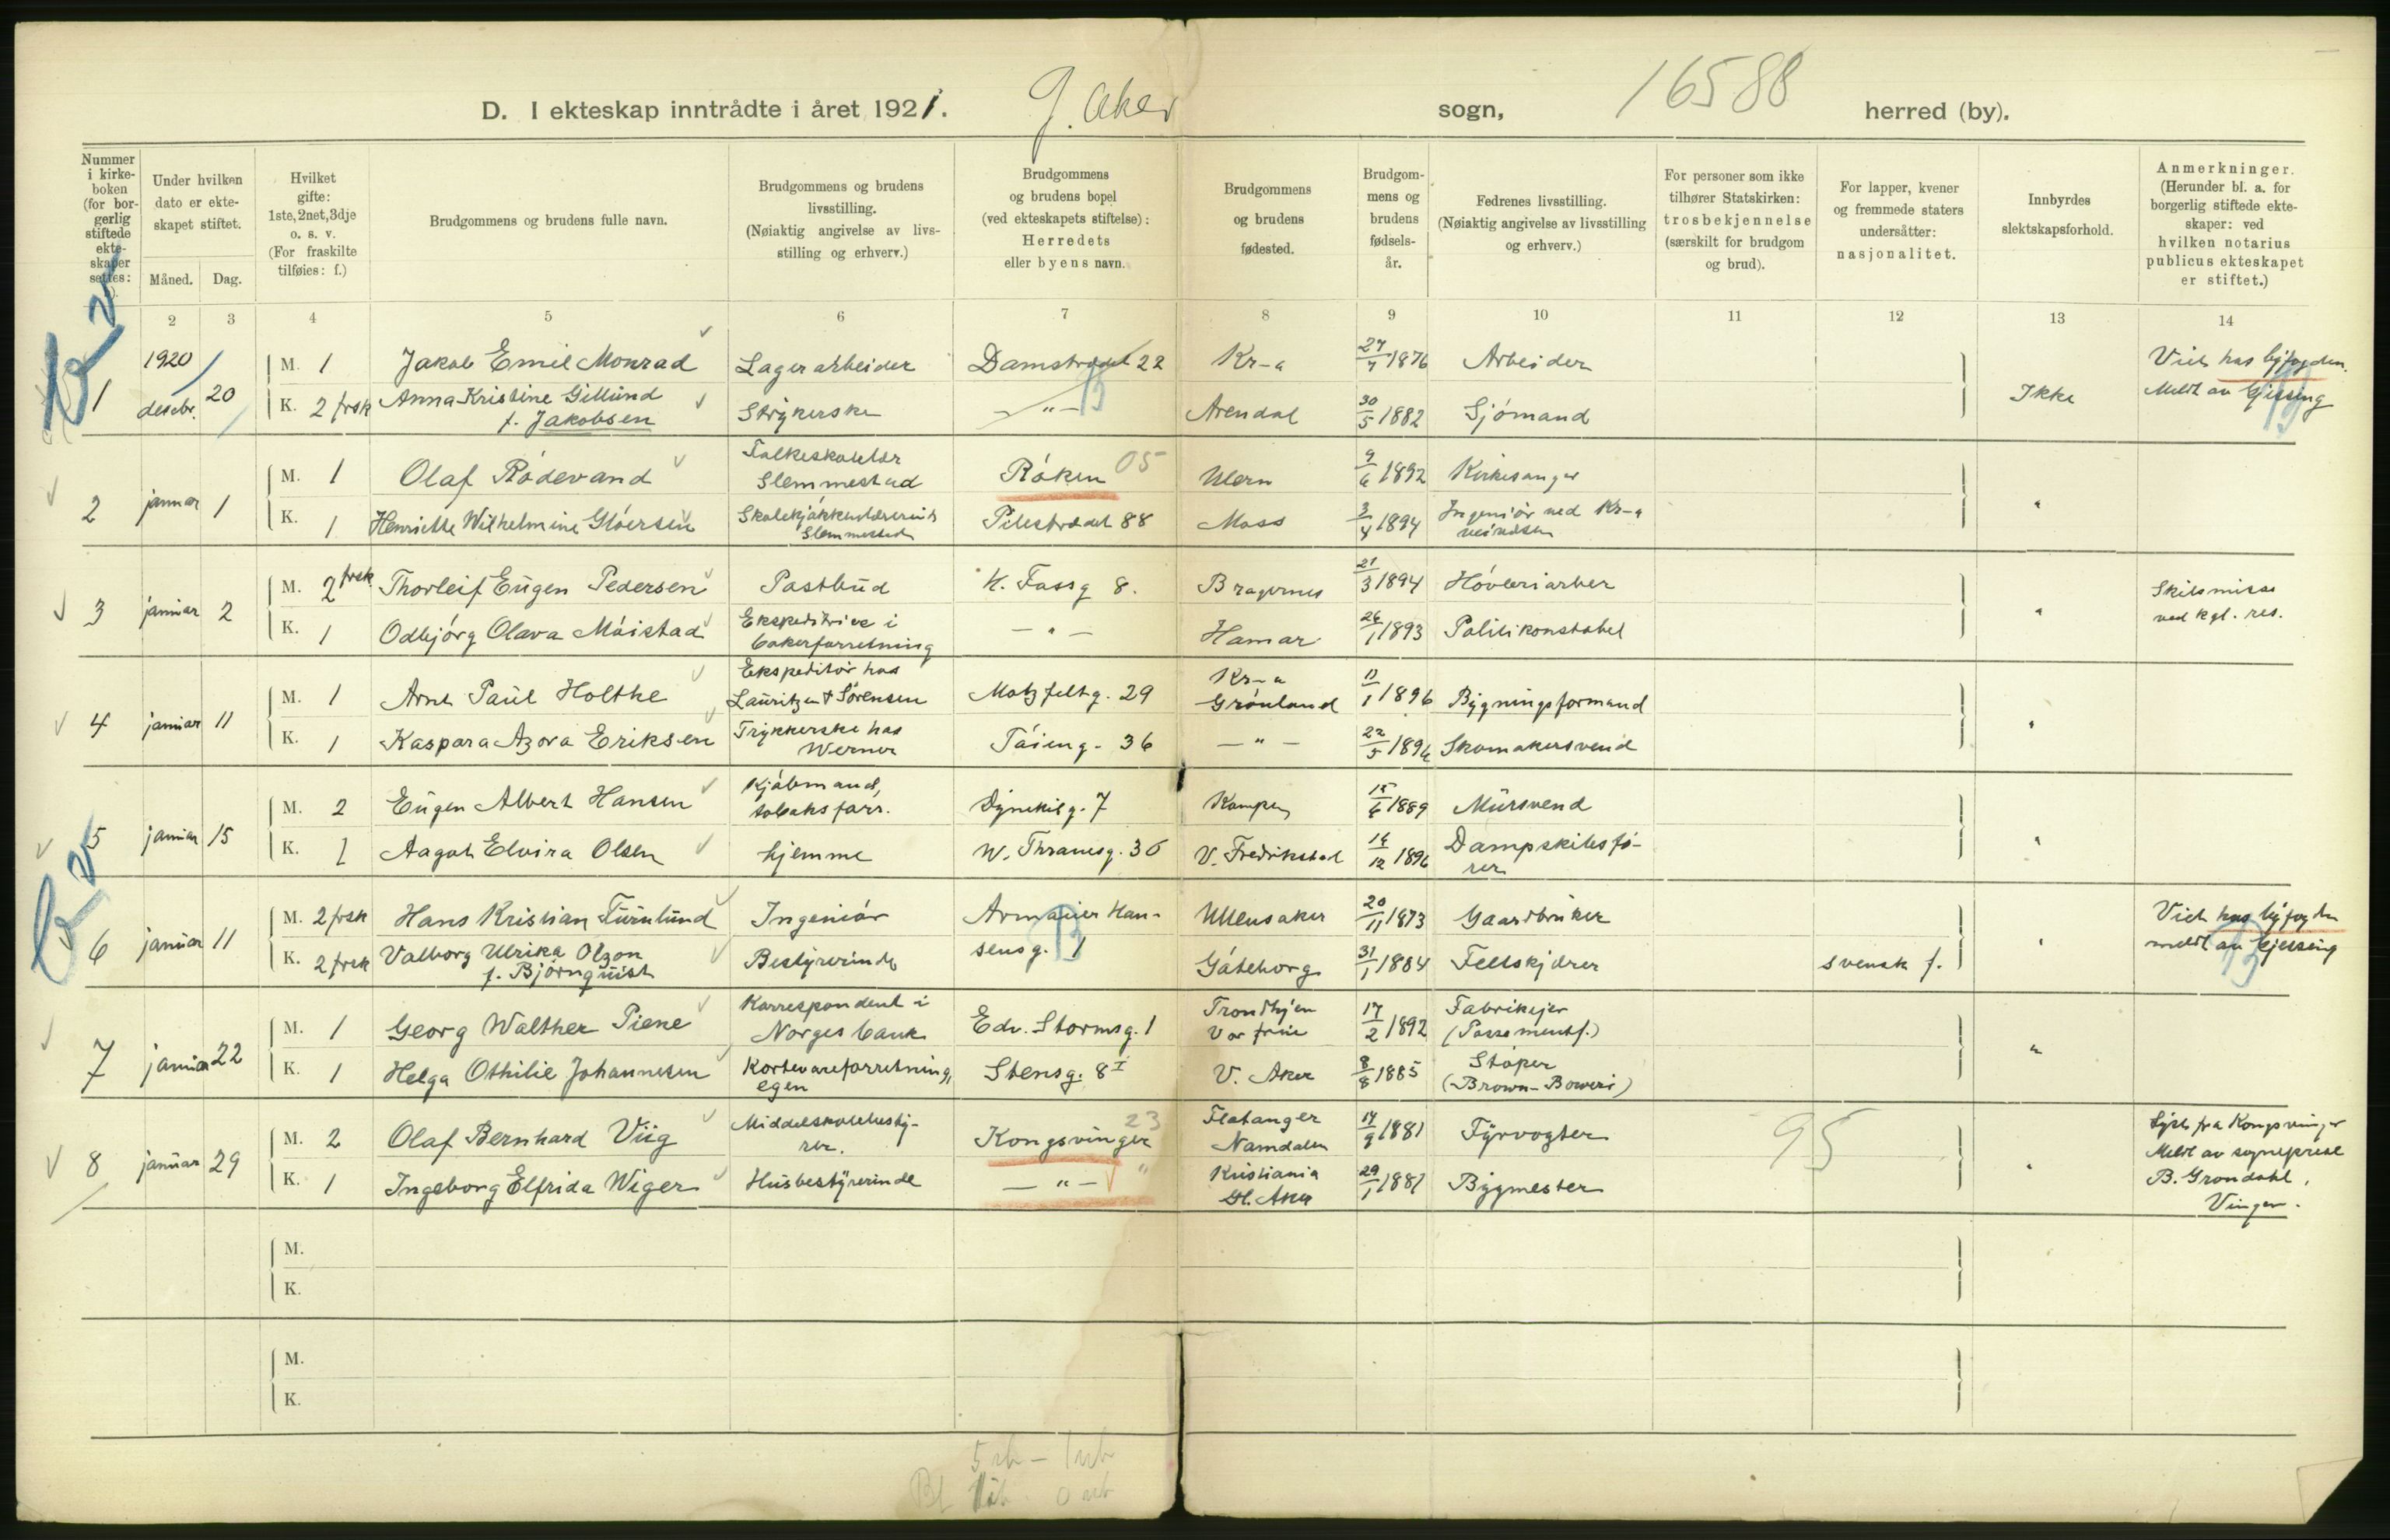 D. I ekteskap inntrådte i året 1921. G. Aker sogn, 16588 herred (by).
Nummer i kirke-boken (for bor-gerlig stiftede ekte-skaper settes:
Under hvilken dato er ekte-skapet stiftet.
Måned. Dag.
Hvilket gifte: 1ste, 2net, 3dje o. s. v. (For fraskilte tilføies: f.)
Brudgommens og brudens fulle navn.
Brudgommens og brudens livsstilling. (Nøiaktig angivelse av livs-stilling og erhverv.)
Brudgommens og brudens bopel (ved ekteskapets stiftelse): Herredets eller byens navn.
Brudgommens og brudens fødested.
Brudgom-mens og brudens fødsels-år.
Fedrenes livsstilling. (Nøiaktig angivelse av livsstilling og erhverv.)
For personer som ikke tilhører Statskirken: trosbekjennelse (særskilt for brudgom og brud).
For lapper, kvener og fremmede staters undersåtter: nasjonalitet.
Innbyrdes slektskapsforhold.
Anmerkninger. (Herunder bl. a. for borgerlig stiftede ekte-skaper: ved hvilken notarius publicus ekteskapet er stiftet.)
2 3 4 5 6 7 8 9 10 11 12 13 14
1 1920 desebr. 20
M. 1 Jakob Emil Monrad Lagerarbeider Damstrædet 22 Kr-a 27/7 1876 Arbeider Viet hos byfogden.
K. 2 frsk Anna Kristine Gillund f. Jakobsen Strykerske — " — Arendal 30/5 1882 Sjómand Ikke Meldt av Gjessing
2 januar 1
M. 1 Olaf Ródevand Folkeskolelær Slemmestad Róken 05 Ullern 9/6 1892 Kirkesanger
K. 1 Henriette Wilhelmine Glóersen Skolekjøkkenlærerinde Slemmestad Pilestrædet 88 Moss 3/4 1894 Ingeniór ved Kr-a veivæsen "
3 januar 2
M. 2 frsk. Thorleif Eugen Pedersen Postbud K. Fossg 8. Bragernes 21/3 1894 Hóvleriarber Skilsmisse
K. 1 Odbjórg Olava Móistad Ekspeditrice i bakerforretning — " — Hamar 26/1 1893 Politikonstabel " ved kgl. res.
4 januar 11
M. 1 Arne Paul Holthe Ekspeditór hos Lauritzen & Sörensen Motzfeltg. 29 Kr-a Grónland 11/1 1896 Bygningsformand
K. 1 Kaspara Azora Eriksen Trykkerske hos Werner Tóieng. 36 — " — 22/5 1896 Skomakersvend "
5 januar 15
M. 2 Eugen Albert Hansen Kjóbmand, tobaksforr. Dynekilg. 7 Kampen 15/6 1889 Mursvend
K. 1 Aagot Elvira Olsen hjemme W. Thranesg. 36 V. Fredrikstad 14/12 1896 Dampskibsfó-rer "
6 januar 11
M. 2 frsk Hans Kristian Furulund Ingeniór Armauer Han- Ullensaker 20/11 1873 Gaardbruker Viet hos byfogden
K. 2 frsk Valborg Ulrika Olzon f. Björnquist Bestyrerinde sens g. 1 Góteborg 31/1 1884 Feltskjærer svensk f. " meldt av Gjessing
7 januar 22
M. 1 Georg Walther Piene Korrespondent i Norges bank Edv. Stormsg. 1 Trondhjem Vor frue 17/2 1892 Fabrikejer (Possementf.)
K. 1 Helga Othilie Johannesen Kortevareforretning, egen Stensg. 8 I V. Aker 8/8 1885 Stóper (Brown-Boweri) "
8 januar 29
M. 2 Olaf Bernhard Viig Middelskolebesty-rer. Kongsvinger 23 Flatanger Namdalen 14/9 1881 Fyrvogter 95 Lyst fra Kongsvinger Meldt av sogneprest
K. 1 Ingeborg Elfrida Wiger Husbestyrerinde — " — Kristiania Gl. Aker 29/1 1881 Bygmester " B. Grondahl, Vinger.
M.
K.
M.
K.